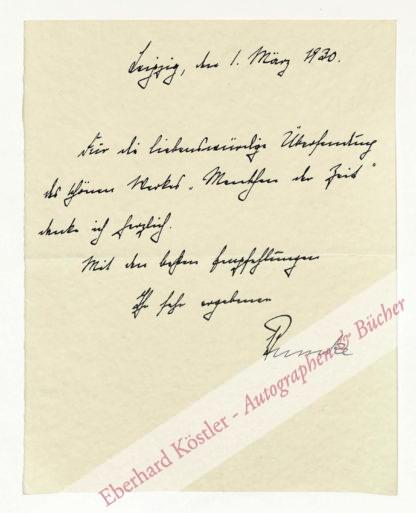 Leipzig, den 1. März 1930.
Für die liebenswürdige Übersendung
des schönen Werkes „Menschen der Zeit“
danke ich herzlich.
Mit den besten Empfehlungen
Ihr sehr ergebener
Eberhard Köstler - Autographen & Bücher